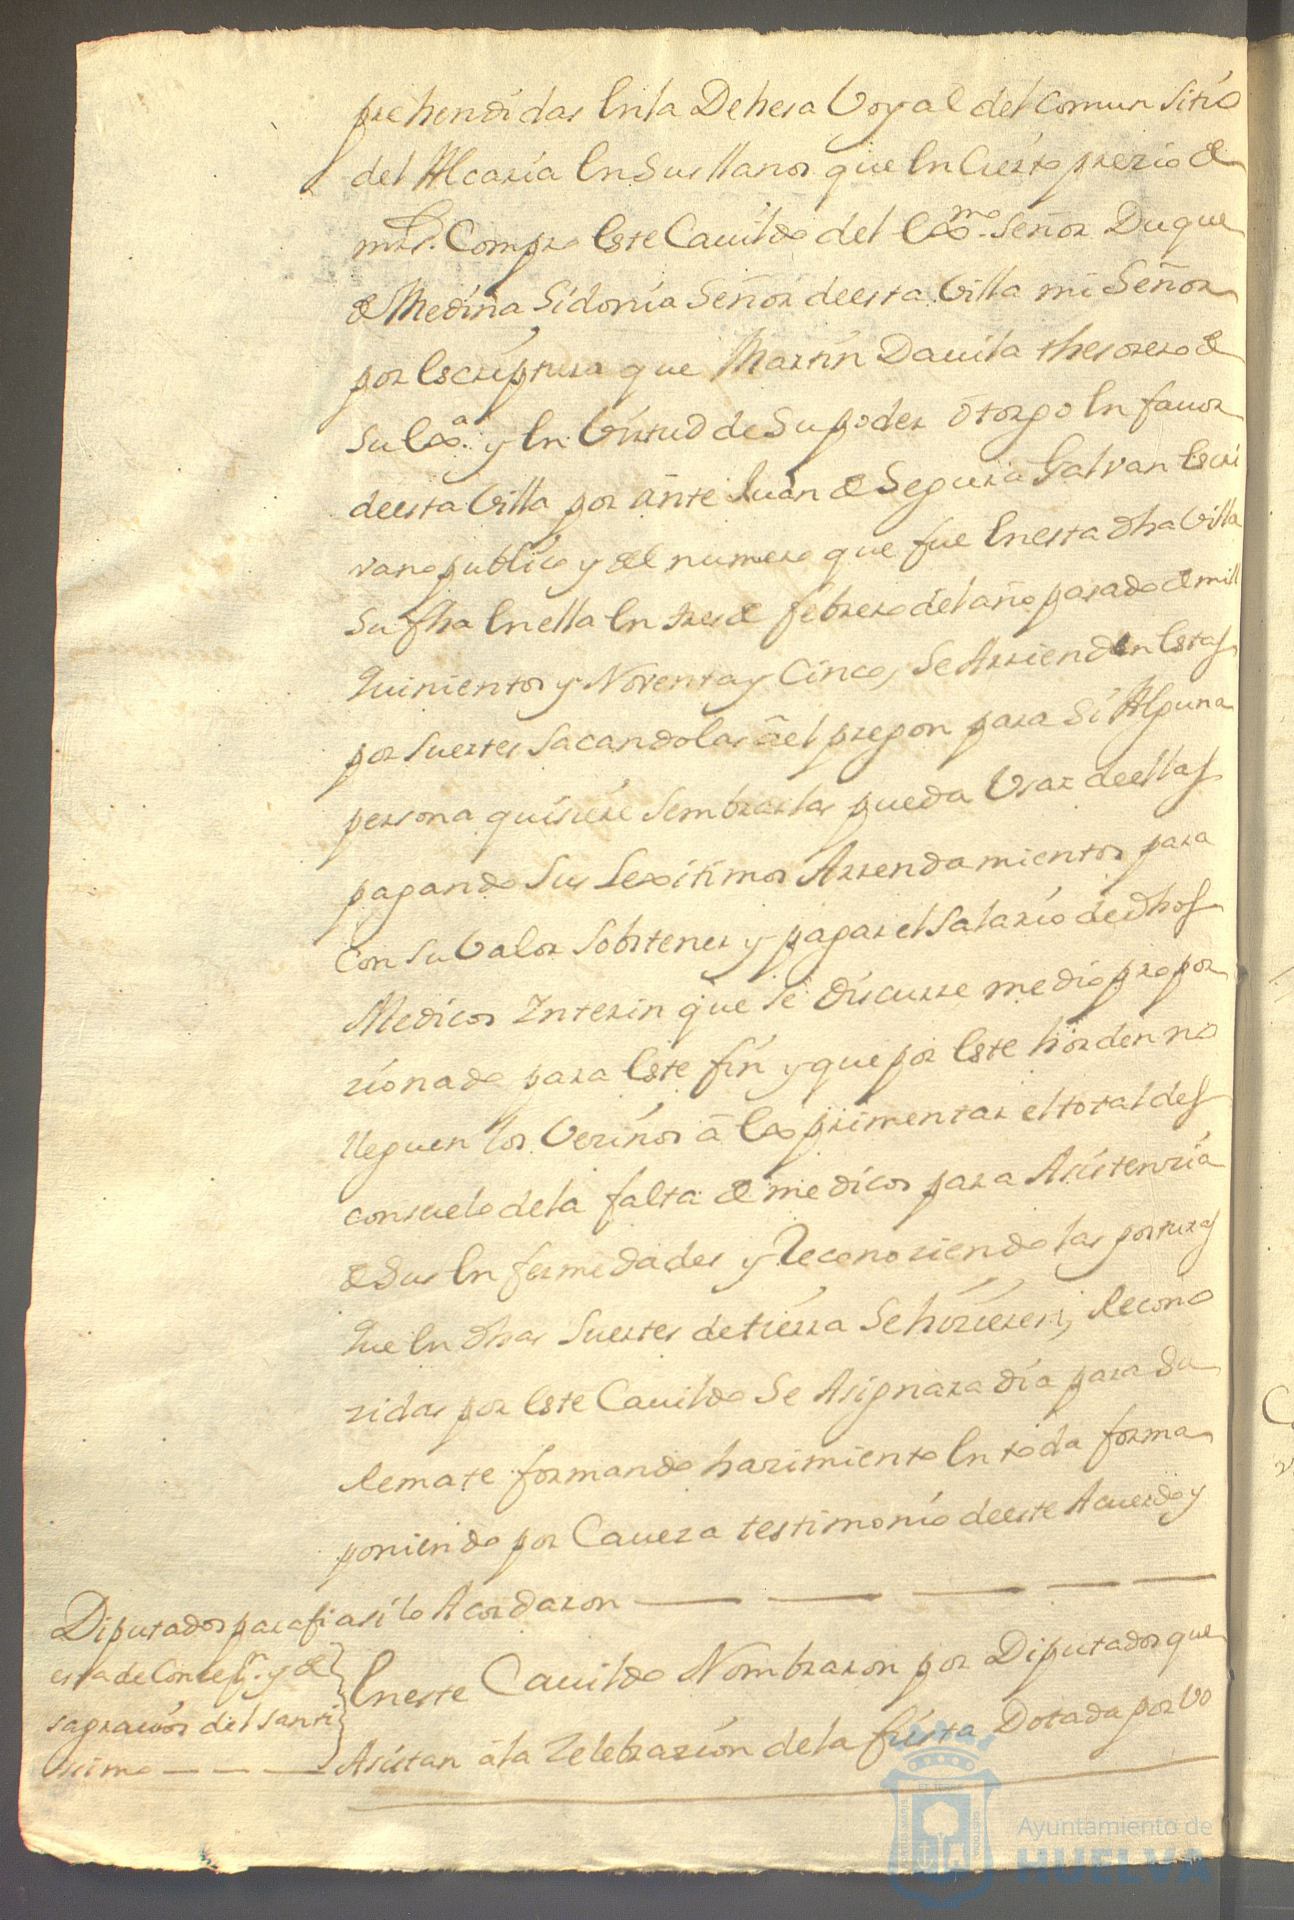 prehendidas en la Dehesa Voyal del comun Sitio
del Alcaria en sus llanos que en Cierto prezio de
mrs. Compro este Cauildo del exmo. Señor Duque
de Medina Sidonia Señor de esta Villa mi Señor
por escriptura que Martin Dauila thesorero de
su exa. y en Virtud de Su poder otorgo en fauor
de esta Villa por ante Juan de Segura Galvan escri
vano publico y del numero que fue en esta dha Villa
su fha en ella en tres de febrero del año pasado de mill
quinientos y Noventa y Cinco, Se Arrienden estas
por suertes sacandolas a el pregon para si Alguna
persona quisiere sembrarlas pueda Vsar de ellas
pagando sus Lexitimos Arrendamientos para
con su Valor sobstener y pagar el salario de dhos
Medicos Interin que se discurre medio propor
zionado para este fin y que por este horden no
lleguen los Vezinos a experimentar el total des
consuelo de la falta de medicos para Asistenzia
de Sus enfermedades y Reconoziendo las posturas
que en dhas suertes de tierra se hizieren, Recono
zidas por este Cauildo Se Asignara dia para Su
Remate formando hazimiento en toda forma
poniendo por Caueza testimonio de este Acuerdo y
asi lo Acordaron
Diputados para fi
esta de Concepn. y de
sagrarios del santi
simo
En este Cauildo Nombraron por Diputados que
Asistan a la Zelebrazion de la fiesta Dotada por Vo
Ayuntamiento de
HUELVA